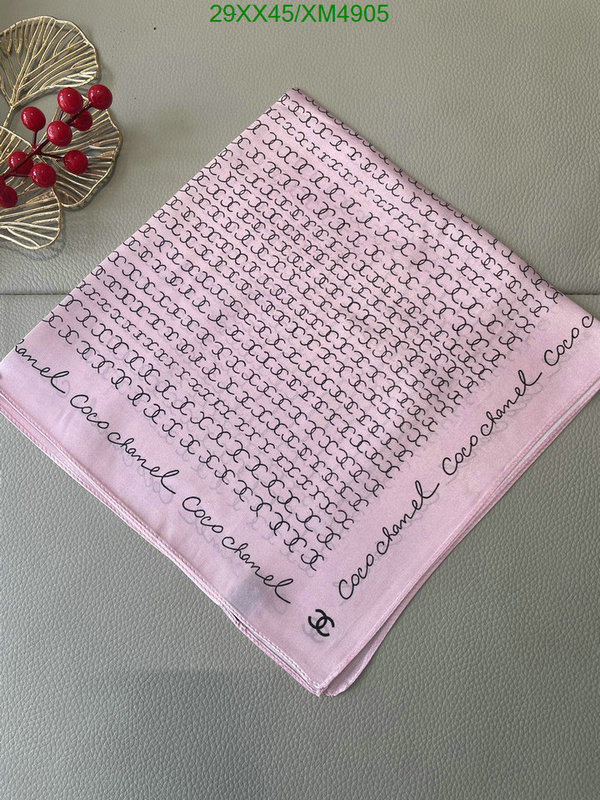 29XX45/XM4905
coco chanel
coco chanel
coco chanel
coco chanel
coco
chanel